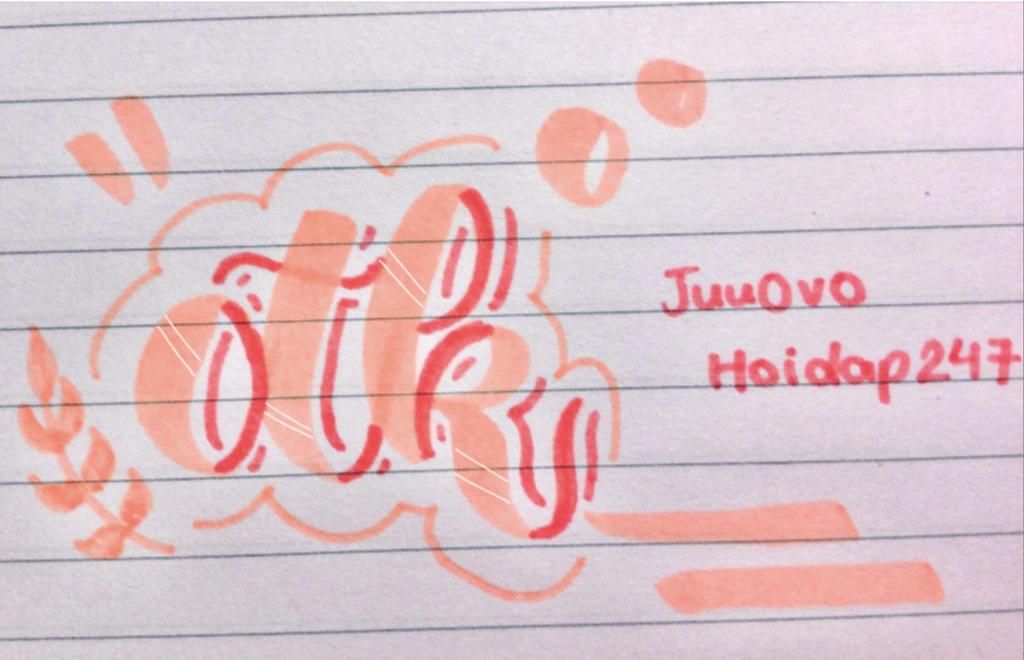 đk
JuuOvo
Hoidap247